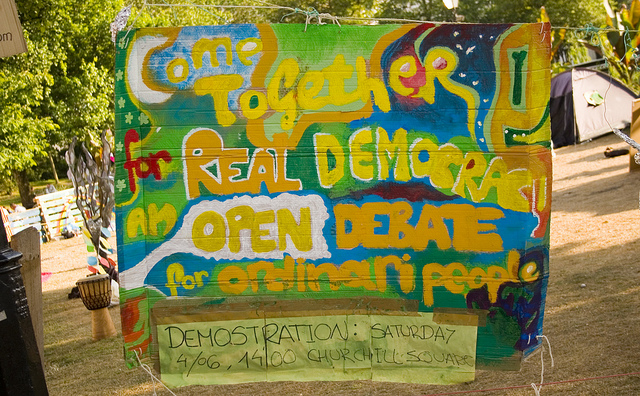 om
Come
TOGETHER
for REAL DEMOCRACY
AN OPEN DEBATE
for ordinari people
DEMOSTRATION: SATURDAY
4/06, 14:00 CHURCHILL SQUARE